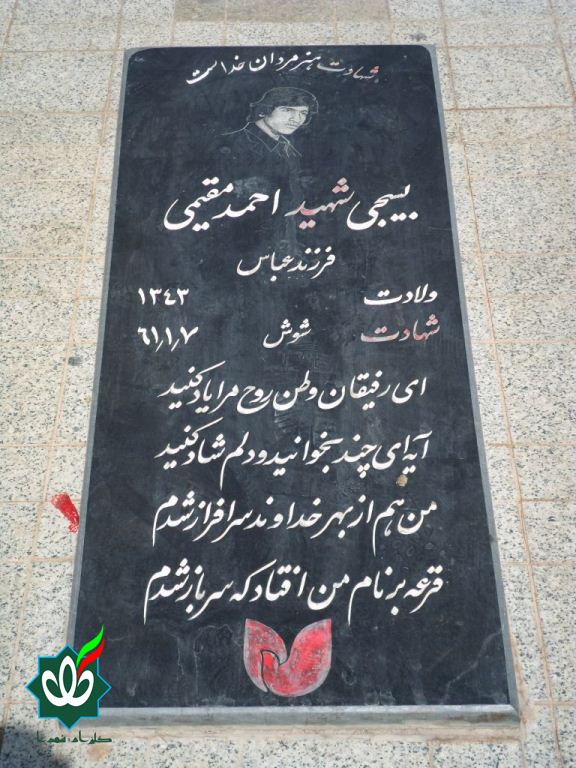 شهادت هنر مردان خداست
بسیجی شهید احمد مقیمی
فرزند عباس
ولادت ۱۳۴۳
شهادت شوش ۶۱٫۱٫۷
ای رفیقان وطن روح مرا یاد کنید
آیه‌ای چند بخوانید و دلم شاد کنید
من هم از بهر خداوند سرافراز شدم
قرعه بر نام من افتاد که سرباز شدم